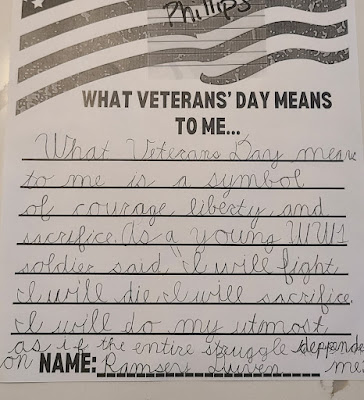 Phillips
WHAT VETERANS' DAY MEANS
TO ME...
What Veterans Day means
to me is a symbol
of courage, liberty, and
sacrifice. As a young WW1
soldier said, I will fight,
I will die, I will sacrifice
I will do my utmost,
as if the entire struggle
on me.
NAME: Ramsery